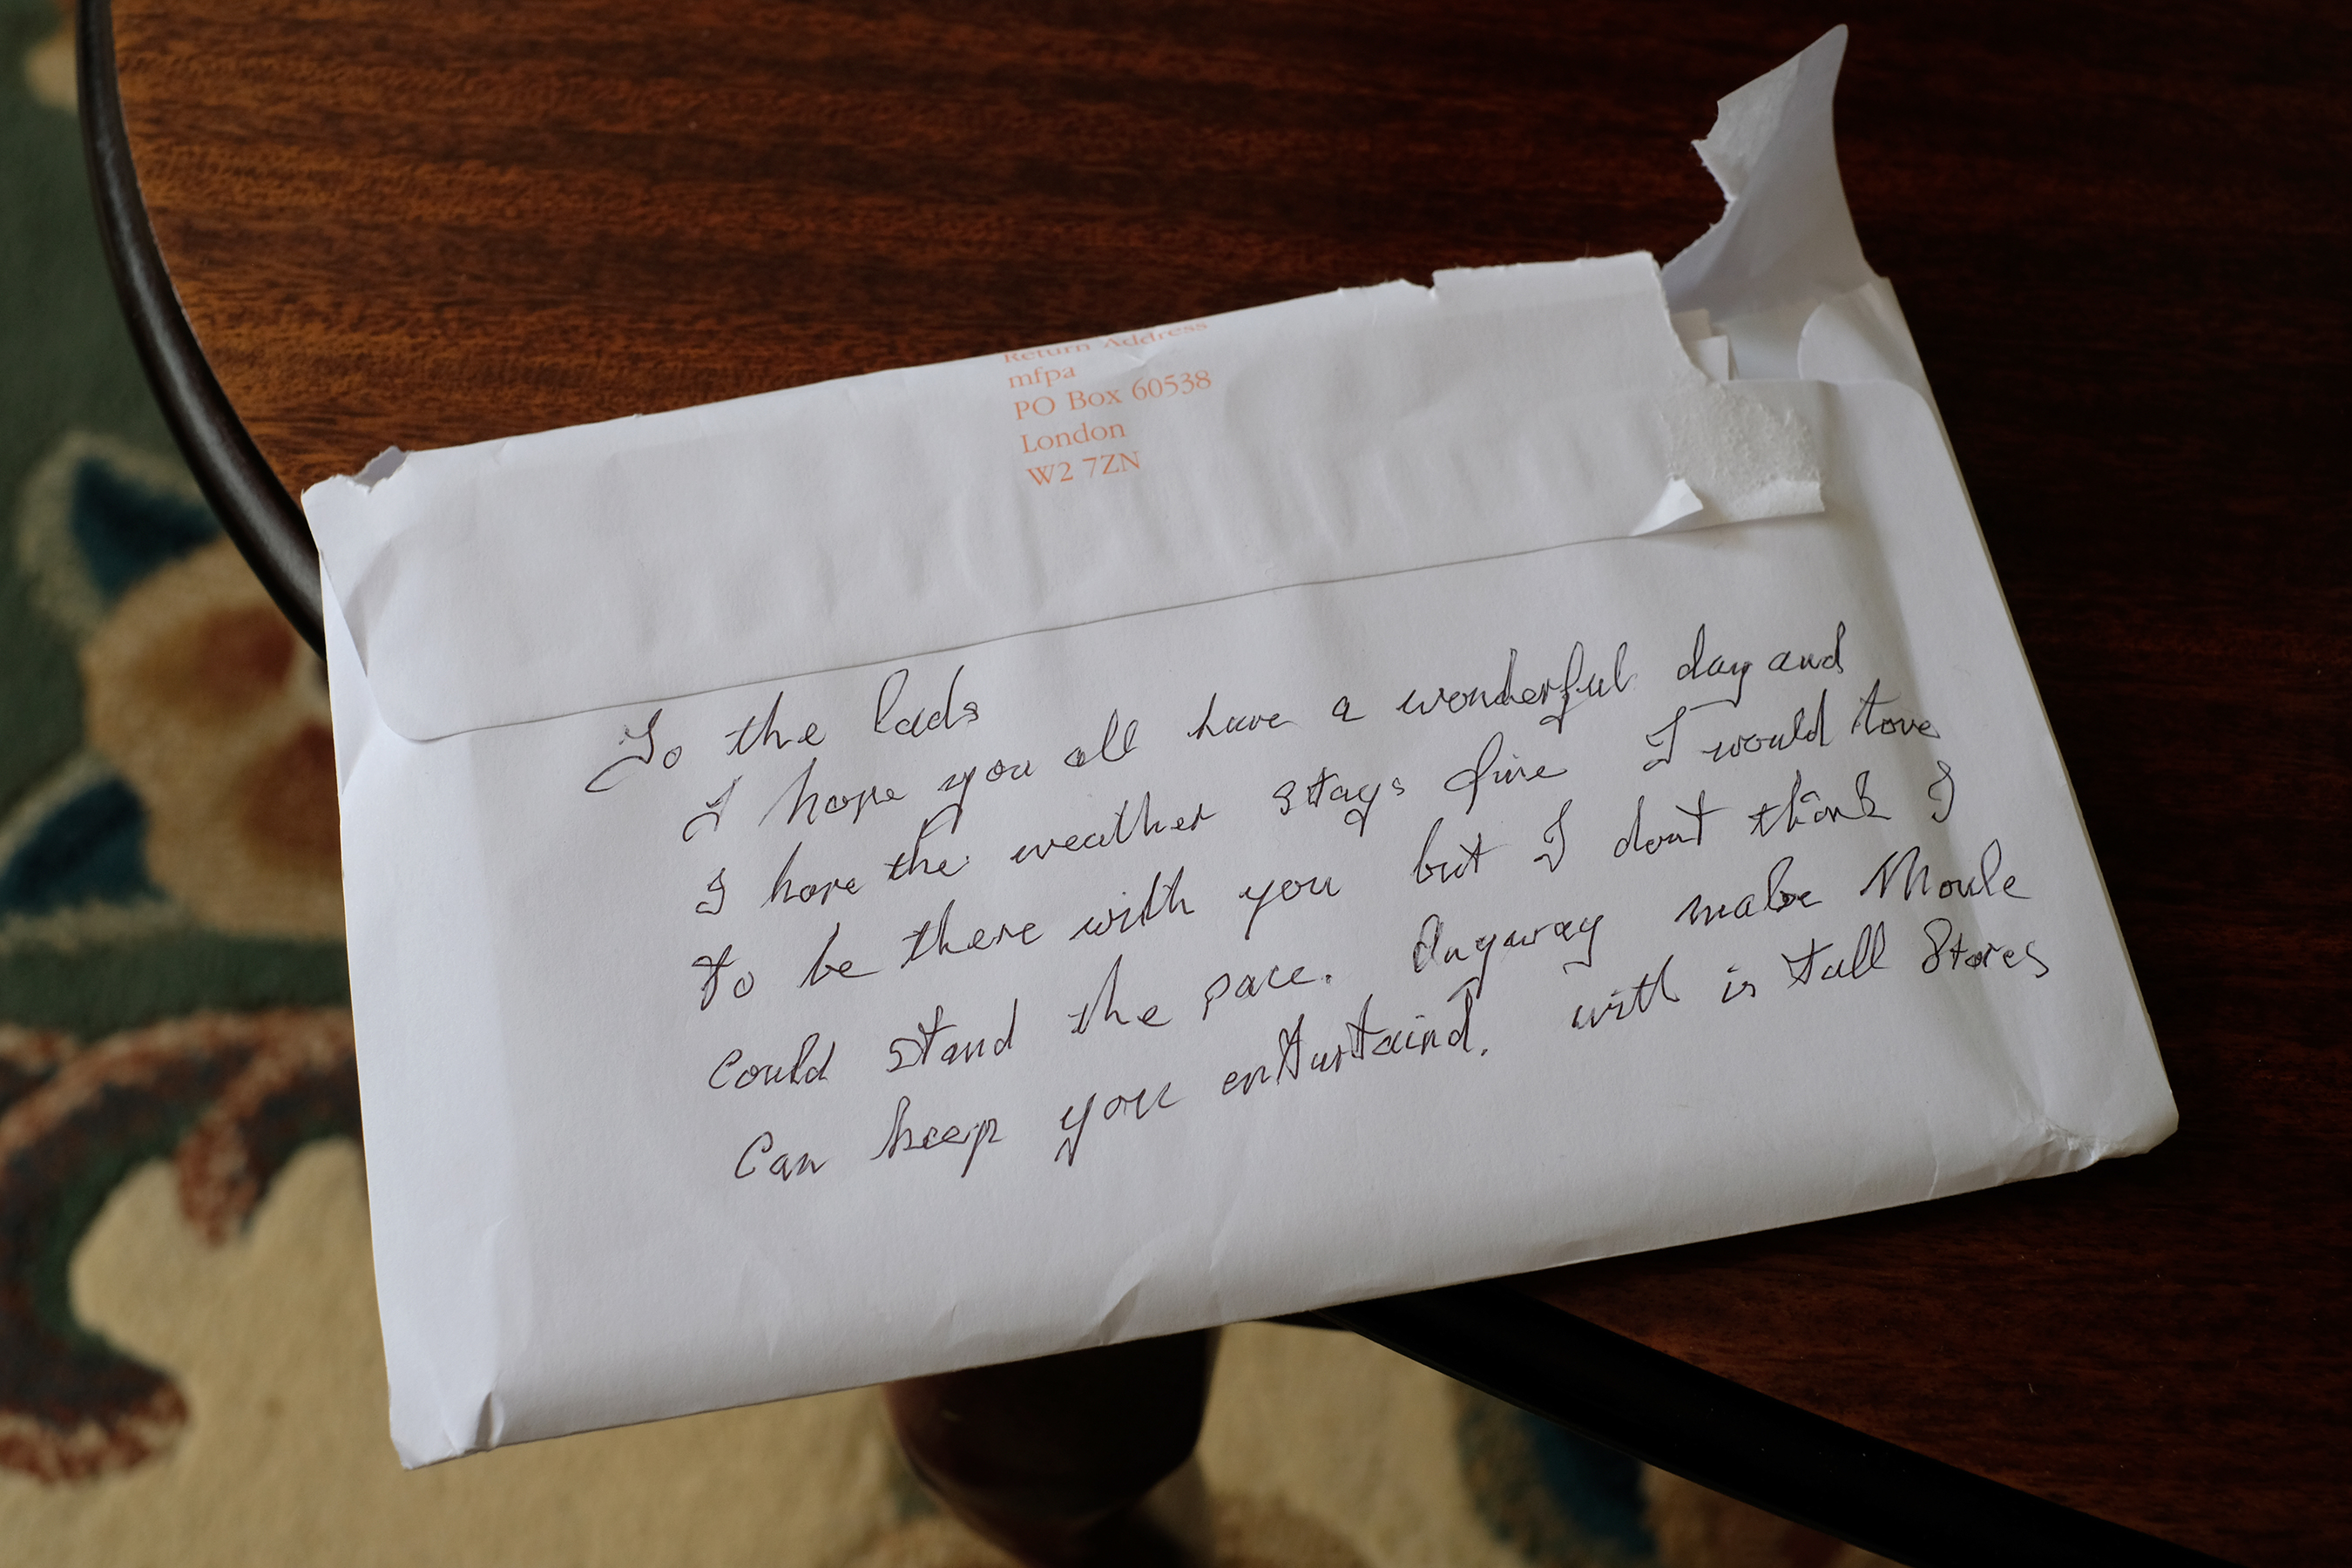 Return Address
mfpa
PO Box 60538
London
W2 7ZN
To the lads
I hope you all have a wonderful day and
I hope the weather stays fine I would love
to be there with you but I dont think I
could stand the pace. Anyway make
can keep you enturtaind. with is tall Stores